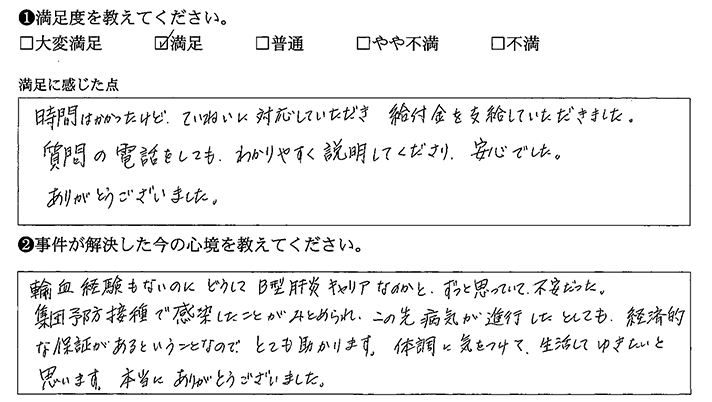 ❶満足度を教えてください。
□大変満足 ☑満足 □普通 □やや不満 □不満
満足に感じた点
時間はかかったけど、ていねいに対応していただき 給付金を支給していただきました。
質問の電話をしても、わかりやすく説明してくださり、安心でした。
ありがとうございました。
❷事件が解決した今の心境を教えてください。
輸血経験もないのにどうしてB型肝炎キャリアなのかと、ずっと思っていて、不安だった。
集団予防接種で感染したことがみとめられ、この先病気が進行したとしても、経済的
な保証があるということなので、とても助かります。体調に気をつけて、生活してゆきたいと
思います。本当にありがとうございました。